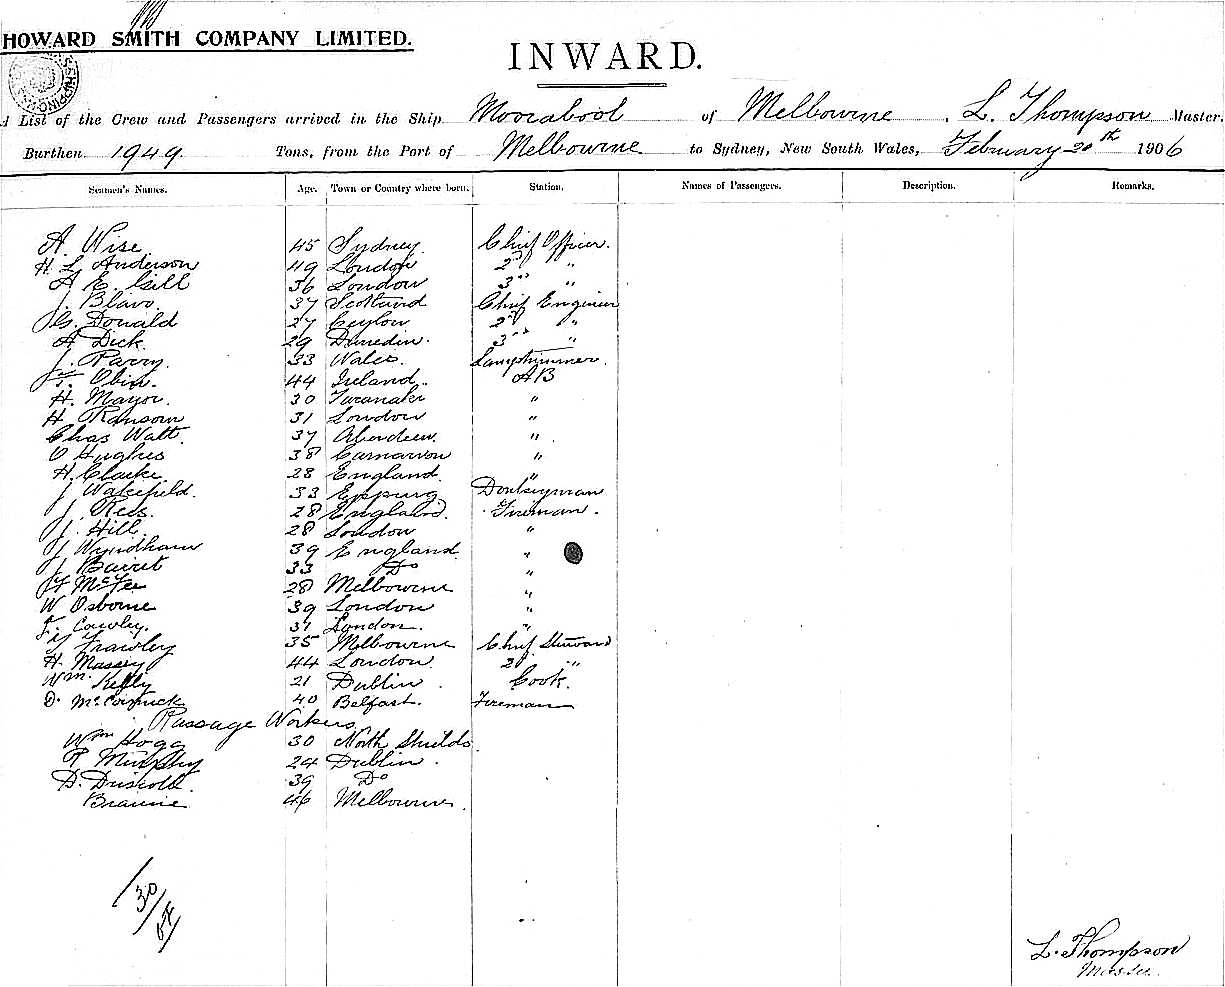 HOWARD SMITH COMPANY LIMITED.
INWARD.
A List of the Crew and Passengers arrived in the Ship Moorabool of Melbourne, L. Thompson Master,
Burthen 1949 Tons, from the Port of Melbourne to Sydney, New South Wales, February 20th 1906
Seamen's Names. Age. Town or Country where born. Station. Names of Passengers. Description. Remarks.
A. Wise 45 Sydney Chief Officer.
H. L. Anderson 49 London 2nd "
A E. Gill 36 London 3rd "
J. Blavo 37 Scotland Chief Engineer
G. Donald 27 Ceylon 2nd "
A. Dick 29 Dunedin. 3rd "
J. Parry 33 Wales. Lamptrimmer.
T. Obin. 44 Ireland. AB
H. Mayor. 30 Taranaki "
H Ransom 31 London "
Chas Watt. 37 Aberdeen. "
O Hughes 38 Carnarvon "
H. Clarke. 28 England. "
J Wakefield. 33 Epping Donkeyman
J. Rees. 28 England. Fireman.
J. Hill 28 London "
J Wyndham 39 England "
J 33 Do "
McFee 28 Melbourne "
W Osborne 39 London "
F. Cawley. 31 London. "
Frawley 35 Melbourne Chief Steward
H. Massey 44 London. 2d "
Wm. Kelly 21 Dublin. Cook.
D. McCormick 40 Belfast. Fireman
Passage Workers
Wm Hogg 30 North Shields.
P Murphy 24 Dublin.
D. Driscoll. 39 Do
46 Melbourne.
30
L. Thompson
Master.